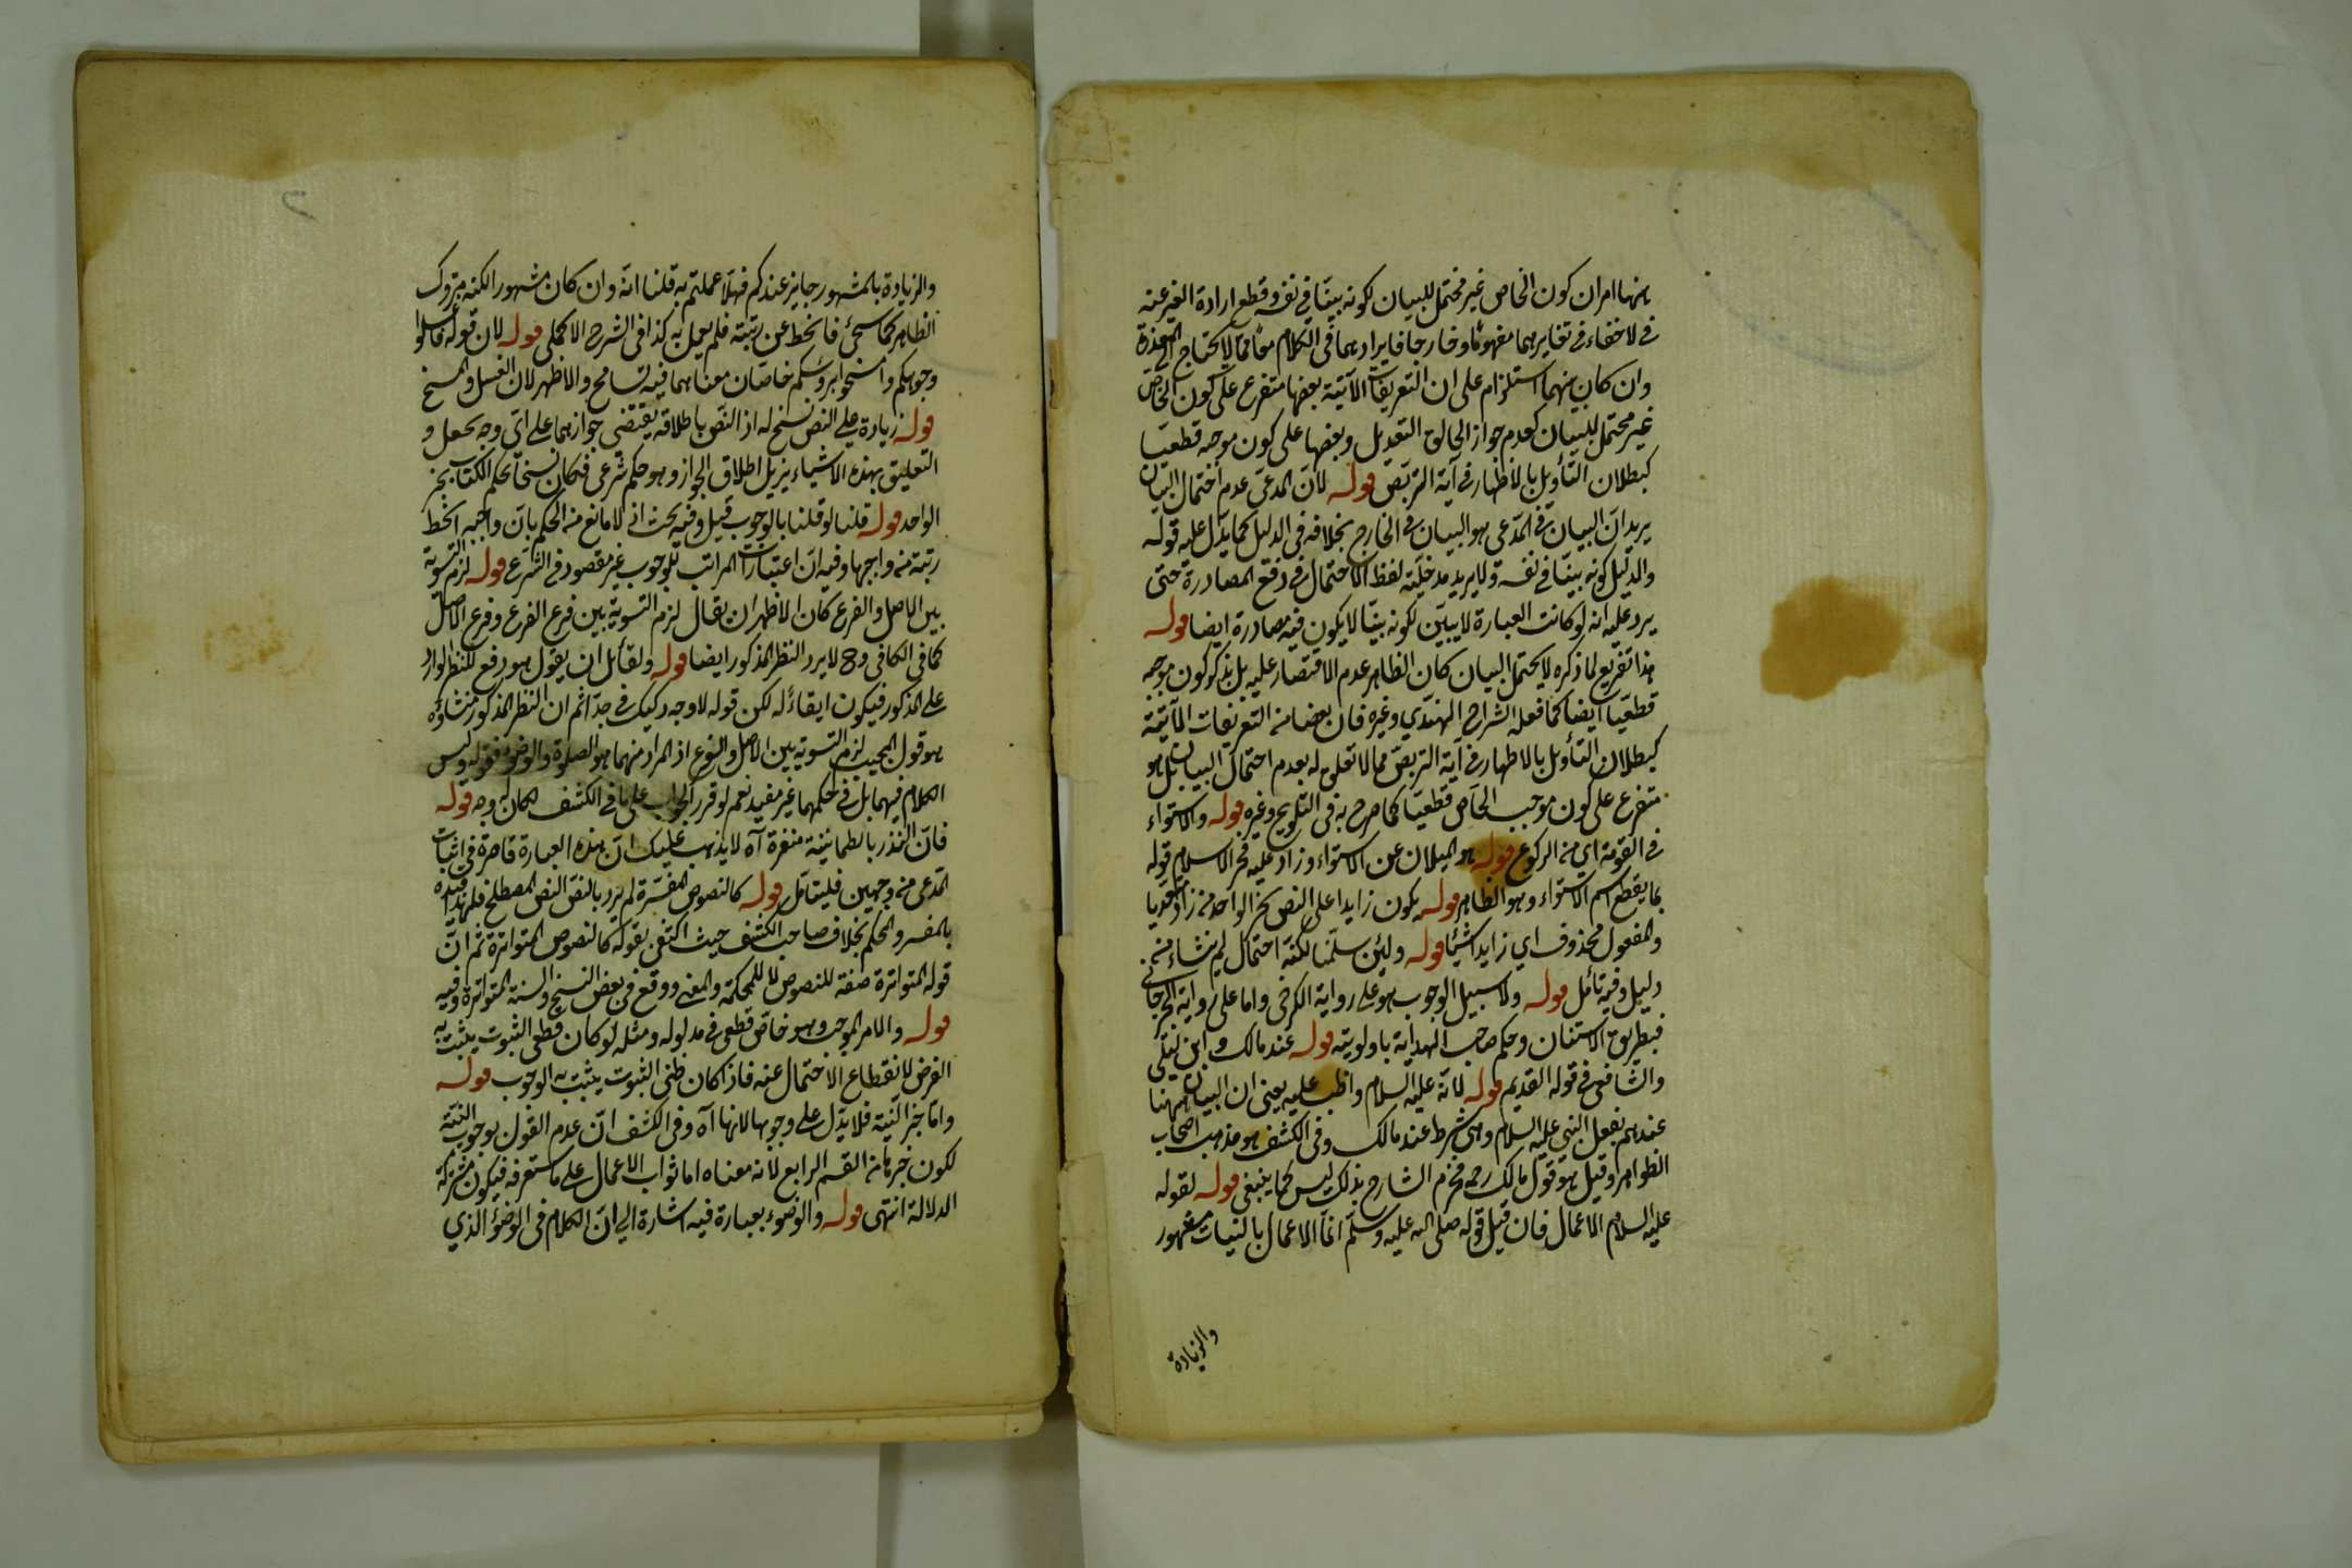 ههنا امران كون الخاص غير محتمل للبيان لكونه بينا في نفسه وقطع ارادة الغير عنه
في لا خفاء في تغايرهما مفهوما وخارجا فايرادهما في الكلام معا مما لا يحتاج الى
وان كان بينهما استلزام على ان التعريفات الآتية بعضها متفرع على كون الخاص
غير محتمل للبيان كعدم جواز الحاق التعديل وبعضها على كون موجبه قطعيا
كبطلان التأويل بالاطهار في آية التربص قوله لان المدعى عدم احتمال البيان
يريد ان البيان في المدعى هو البيان في الخارج بخلافه في الدليل كما يدل عليه قوله
والدليل كونه بينا في نفسه ولا يريد مدخلية لفظ الاحتمال في دفع المصادرة حتى
يرد عليه انه لو كانت العبارة لا يبين لكونه بينا لا يكون فيه مصادرة ايضا قوله
هذا تفريع لما ذكره لا يحتمل البيان كان الظاهر عدم الاقتصار عليه بل يذكر كون موجبه
قطعيا ايضا كما فعله الشراح الهندي وغيره فان بعضا من التعريفات الآتية
كبطلان التأويل بالاطهار في آية التربص مما لا تعلق له بعدم احتمال البيان بل هو
متفرع على كون موجب الخاص قطعيا كما صرح به في التلويح وغيره قوله والاستواء
في القومة اي من الركوع قوله هو الميلان عن الاستواء وزاد عليه فخر الاسلام قوله
بما يقطع اسم الاستواء وهو الظاهر قوله يكون زايدا على النص بخبر الواحد من زاد متعديا
والمفعول محذوف اي زايدا شيئا قوله ولئن سلمنا لكنه احتمال لم ينشاء من
دليل وفيه تأمل قوله ولا سبيل الوجوب هو على رواية الكرخي واما على رواية الجرجاني
فبطريق الاستنان وحكم صاحب الهداية باولويته قوله عند مالك وابن ليلى
والشافعي في قوله القديم قوله لانه عليه السلام واظب عليه يعني ان البيان ههنا
عندهم بفعل النبي عليه السلام وهي شرط عند مالك وفي الكشف هو مذهب اصحاب
الظواهر وقيل هو قول مالك رحمه فجزم الشارح بذلك ليس كما ينبغي قوله لقوله
عليه السلام الاعمال فان قيل قوله صلى الله عليه وسلم انما الاعمال بالنيات مشهور
والزيادة
والزيادة بالمشهور جايز عندكم فهلا عملتم به قلنا انه وان كان مشهورا لكنه متروك
الظاهر كما سيجئ فانحط عن رتبته فلم يعمل به كذا في الشرح الاكملي قوله لان قوله فاغسلوا
وجوهكم وامسحوا برؤسكم خاصان معناهما فيه تسامح والاظهر لان الغسل والمسح
قوله زيادة على النص نسخ له اذ النص باطلاقه يقتضي جوازهما على اي وجه يحصل و
التعليق بهذه الاشياء يزيل اطلاق الجواز وهو حكم شرعي فكان نسخا لحكم الكتاب بخبر
الواحد قوله قلنا لو قلنا بالوجوب قيل وفيه بحث اذ لا مانع من الحكم بان واجبه احط
رتبة من واجبها وفيه ان اعتبارات المراتب للوجوب غير مقصود في الشرع قوله لزم التسوية
بين الاصل والفرع كان الاظهر ان يقال لزم التسوية بين فرع الفرع وفرع الاصل
كما في الكافي وح لا يرد النظر المذكور ايضا قوله ولقائل ان يقول هو دفع للنظر الوارد
على المذكور فيكون ايقاء له لكن قوله لا وجه ركيك في جدا ثم ان النظر المذكور منشاؤه
هو قول المجيب لزم التسوية بين الاصل والفرع اذ المراد منهما هو الصلوة والوضوء فقوله وليس
الكلام فيهما بل في حكمهما غير مفيد نعم لو قرر الجواب على ما في الكشف لكان له وجه قوله
فان النذر بالطمانينة منفردة آه لا يذهب عليك ان هذه العبارة قاصرة في اثبات
المدعى من وجهين فليتأمل قوله كالنصوص المفسرة لم يرد بالنص النص المصطلح فلهذا قيده
بالمفسر والمحكم بخلاف صاحب الكشف حيث اكتفى بقوله كالنصوص المتواترة ثم ان
قوله المتواترة صفة للنصوص لا للمحكمة والمعنى ووقع في بعض النسخ والسنة المتواترة وفيه
قوله والامر الموجب وهو خاص قطعي في مدلوله ومثله لو كان قطعي الثبوت يثبت به
الفرض لانقطاع الاحتمال عنه فاذا كان ظني الثبوت يثبت به الوجوب قوله
واما خبر النية فلا يدل على وجوبها لانها آه وفي الكشف ان عدم القول بوجوب النية
لكون خبرها من القسم الرابع لانه معناه اما ثواب الاعمال على ما ستعرفه فيكون مشترك
الدلالة انتهى قوله والوضوء بعبارة فيه اشارة الى ان الكلام في الوضوء الذي